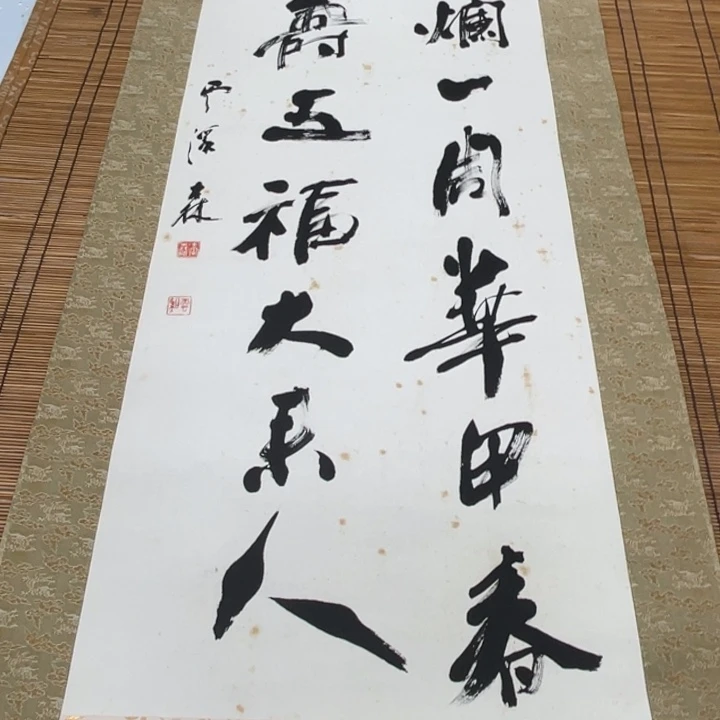 爛一周華甲春
壽五福大人
雲森